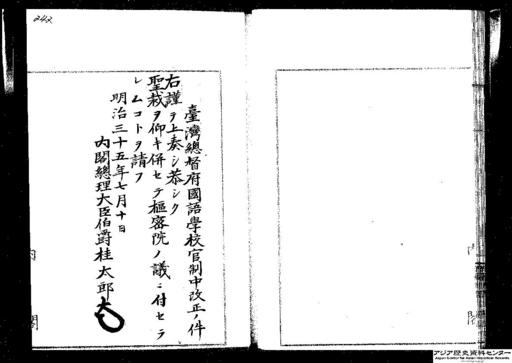 242
臺灣總督府國語學校官制中改正ノ件
右謹テ上奏シ恭シク
聖裁ヲ仰キ併セテ樞密院ノ議ニ付セラ
レムコトヲ請フ
明治三十五年七月十日
內閣總理大臣伯爵桂太郎
アジア歴史資料センター
Japan Center for Asian Historical Records